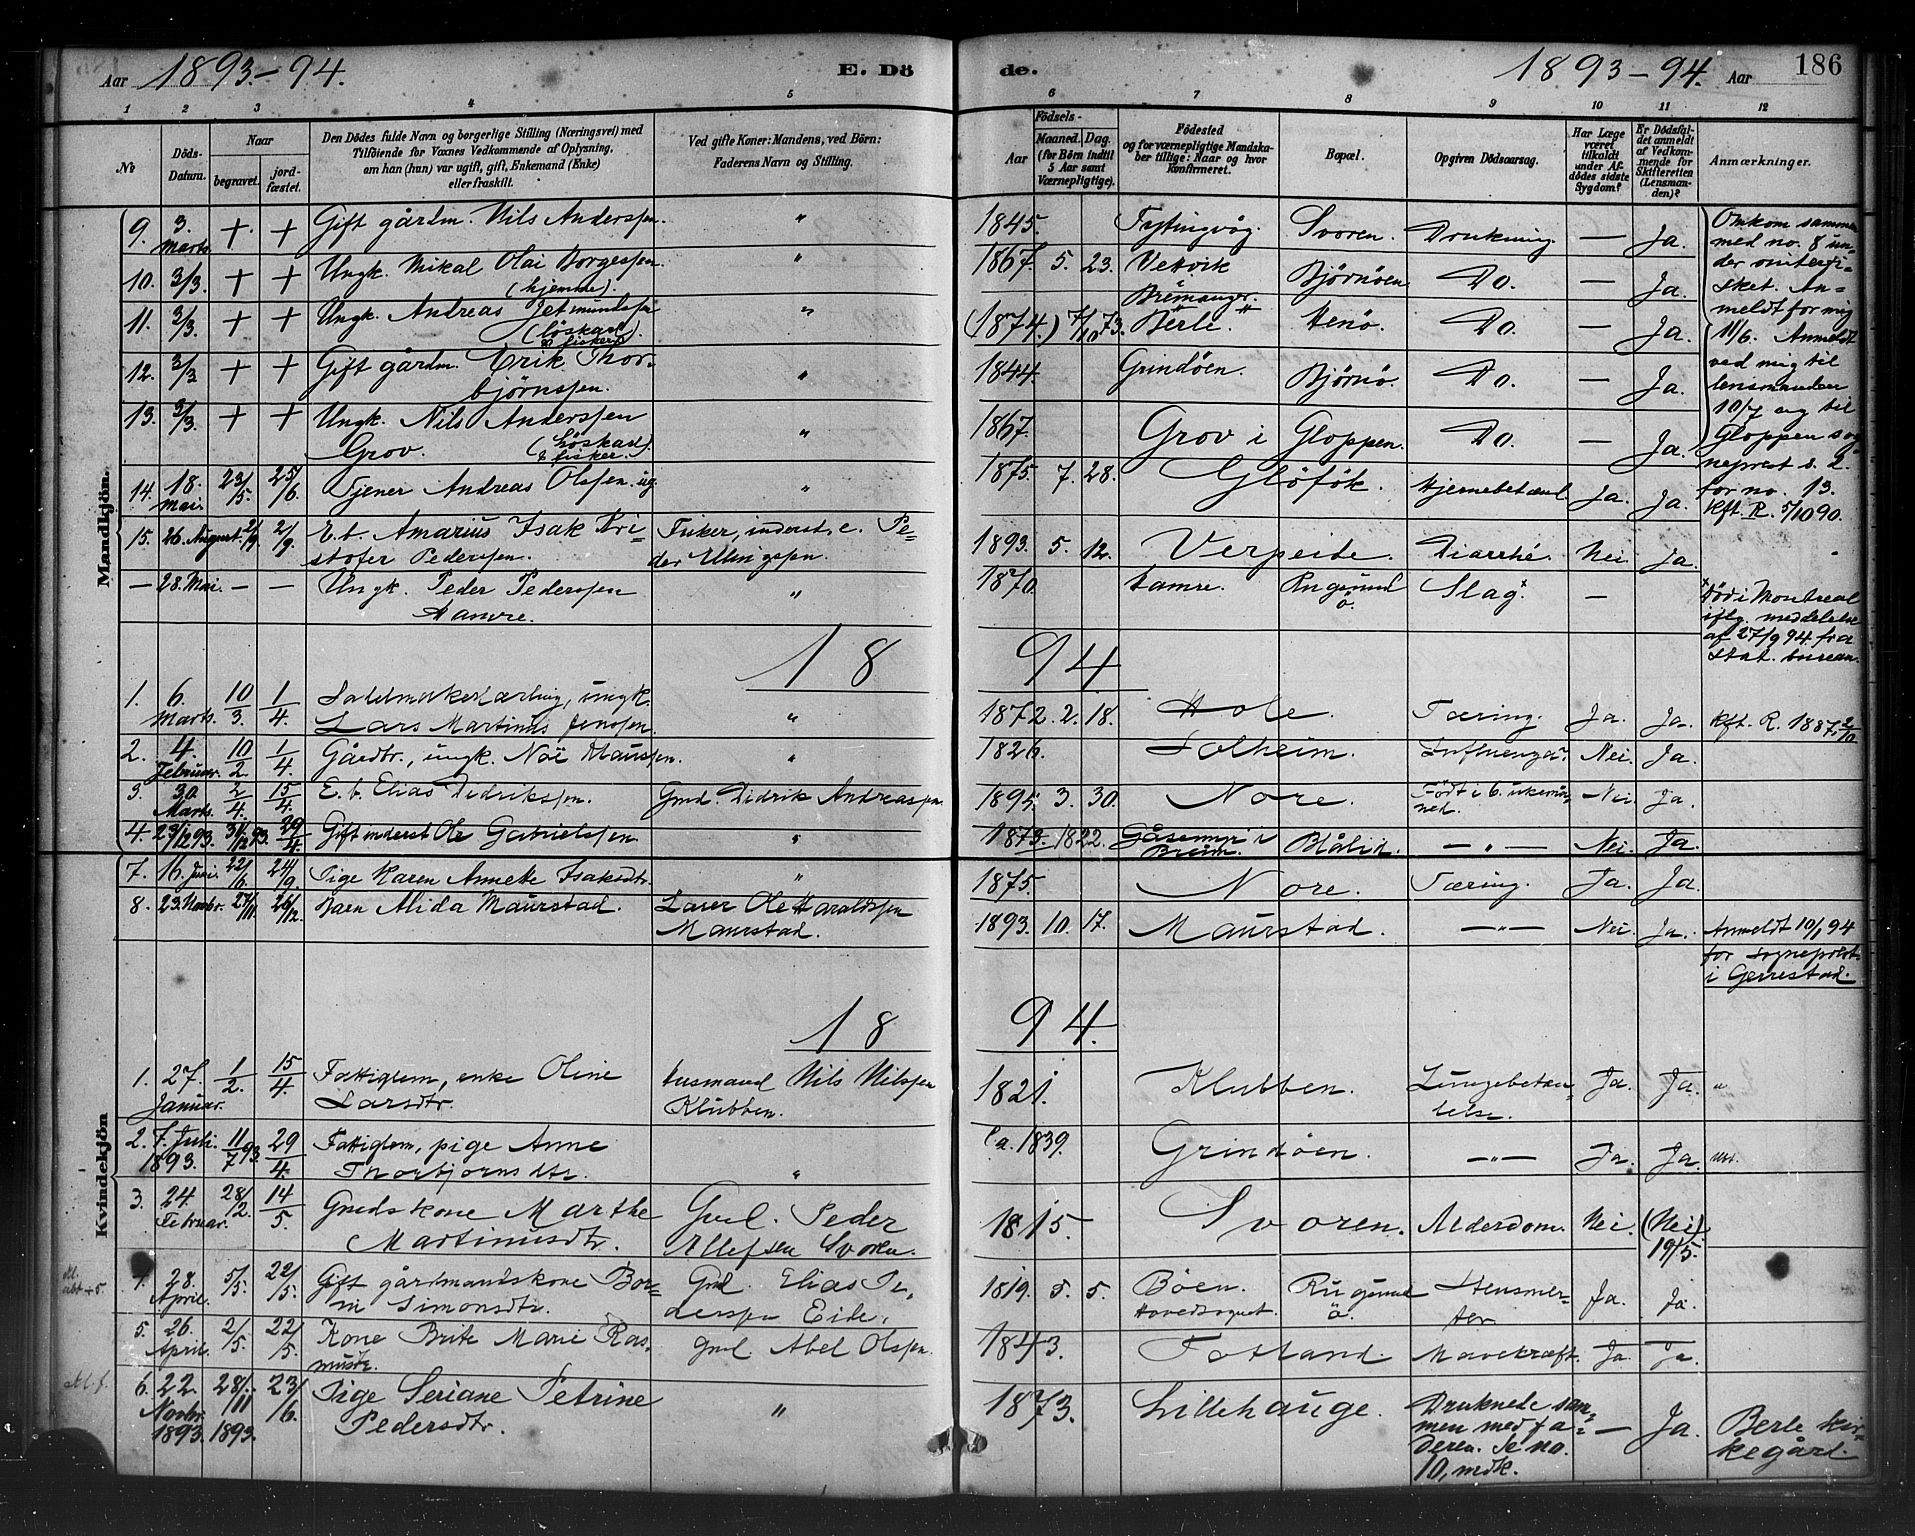 Aar 1893-94. E. Dö
de. 1893-94. Aar 186
1 2 3 4 5
6 7 8 9 10 11 12
No
Döds-Datum.
Naar
begravet.
jord-fæstet.
Den Dödes fulde Navn og borgerlige Stilling (Næringsvei) med
Tilföiende for Voxnes Vedkommende af Oplysning,
om han (hun) var ugift, gift, Enkemand (Enke)
eller fraskilt.
Ved gifte Koner: Mandens, ved Börn:
Faderens Navn og Stilling.
Födsels-
Aar
Maaned. Dag.
(for Börn indtil
5 Aar samt
Værnepligtige).
Födested
og for værnepligtige Mandska-
ber tillige: Naar og hvor
konfirmeret.
Bopæl.
Opgiven Dödsaarsag.
Har Læge
været
tilkaldt
under Af-
dödes sidste
Sygdom?
Er Dödsfal-
det anmeldt
af Vedkom-
mende for
Skifteretten
(Lensman-
den)?
Anmærkninger.
Mandkjön.
9. 3. Marts. + + Gift gårdm. Nils Anderssen. " 1845. Frytingvåg. Svoren. Drukning. — Ja.
10. 3/3. + + Ungk. Mikal Olai Borgessen. (hjemme). " 1867. 5. 23. Vetvik Bremanger. Bjørnøen Do. — Ja.
11. 3/3. + + Ungk. Andreas Jetmundssen (löskarl & fisker) " (1874.) 7/10 73. Berle. Henö. Do. — Ja.
12. 3/3 + + Gift gårdm. Erik Thor-
bjørnssen. " 1844. Grindöen. Bjørnö. Do. — Ja.
13. 3/3. + + Ungk. Nils Anderssen
Grov. (löskarl & fisker.) " 1867. Grov i Gloppen. Do. Ja.
Omkom sammen
med no. 8 un-
der vinterfi-
sket. An-
meldt for mig
11/6. Anmeldt
ved mig til
lensmanden
10/7 og til
Gloppen sog-
neprest s. d.
for no. 13.
14. 18. mai. 23/5. 25/6. Tjener Andreas Olssen, ug. " 1875. 7. 28. Glöfök. Hjernebetænd. Ja. Ja. Kft. R. 5/10 90.
15. 26. August. 2/9. 2/9. E. b. Amarius Isak Kri-
stofer Pederssen. Fisker, inderst, e. Pe-
der Ellingssen. 1893. 5. 12. Verpeide. Diarrhé. Nei. Ja.
— 28. Mai. — — Ungk. Peder Pederssen
Hamre. " 1870. Hamre. Rugsund
ö. Slag. —
Död i Montreal
iflg. meddelelse
af 27/9 94 fra
Stat. bureau.
18 94
1. 6. Marts. 10/3. 1/4. Sadelmakerlærling, ungk.
Lars Martinus Jenssen. " 1872. 2. 18. Hole. Tæring. Ja. Ja. Kft. R. 1887. 2/10
2. 4. Februar. 10/2 1/4. Gårdbr., ungk. Noë Klaussen. " 1826. Solheim. Influenza? Nei. Ja.
3. 30. Marts. 2/4. 15/4. E. b. Elias Didrikssen. Gmd. Didrik Andreassen. 1895. 3. 30. Nore. Født i 6. ukemå-
ned. Nei. Ja.
4. 23/12 93. 31/12 93. 29/4. Gift inderst Ole Gabrielssen. " 1873. 1822. Gåsemyr i
Breim. Blålid. — " — Nei. Ja.
Kvindekjön
7. 16. Juni. 22/6. 24/9. Pige Karen Annette Isaksdtr. " 1875. Nore. Tæring. Ja. Ja.
8. 23. Novbr. 27/11. 26/12. Barn Alida Maurstad. Lærer Ole Haraldssen
Maurstad. 1893. 10. 17. Maurstad. — " — Nei. Ja. Anmeldt 10/1 94
for Sogneprest
i
18 94.
1. 27. Januar. 1/2. 15/4. Fattiglem, enke Oline
Larsdtr. Husmand Nils Nilssen
Klubben. 1821. Klubben. Lungebetæn-
delse. Ja. Ja. "
2. 7. Juli 1893. 11/7 93. 29/4. Fattiglem, pige Anne
Thorbjørnsdtr. " Ca. 1839. Grindöen. — " — Ja. Ja.
3. 24. Februar. 28/2. 14/5. Gmdskone Marthe
Martinusdtr. Gml. Peder
Ellefsen Svoren. 1815. Svoren. Alderdom. Nei. (Nei)
19/5.
28. April. 5/5. 22/5. Gift gårdmandskone Bor-
ni Simonsdtr. Gmd. Elias Pe-
derssen Eide. 1819. 5. 5. Böen.
Hovedsognet. Rugsund
ö. Ja. Ja.
5. 26. April. 2/5. 22/5. Kone Brite Marie Ras-
musdtr. Gml. Abel Olssen. 1843. Totland. Mavekræft. Ja. Ja.
6. 22. Novbr. 1893. 28/11 1893. 23/6. Pige Seriane Petrine
Pedersdtr. " 1873. Lillehauge. Druknede sam-
men med fa-
deren. Se no.
10, mdk. — Ja. Berle kir-
kegård.